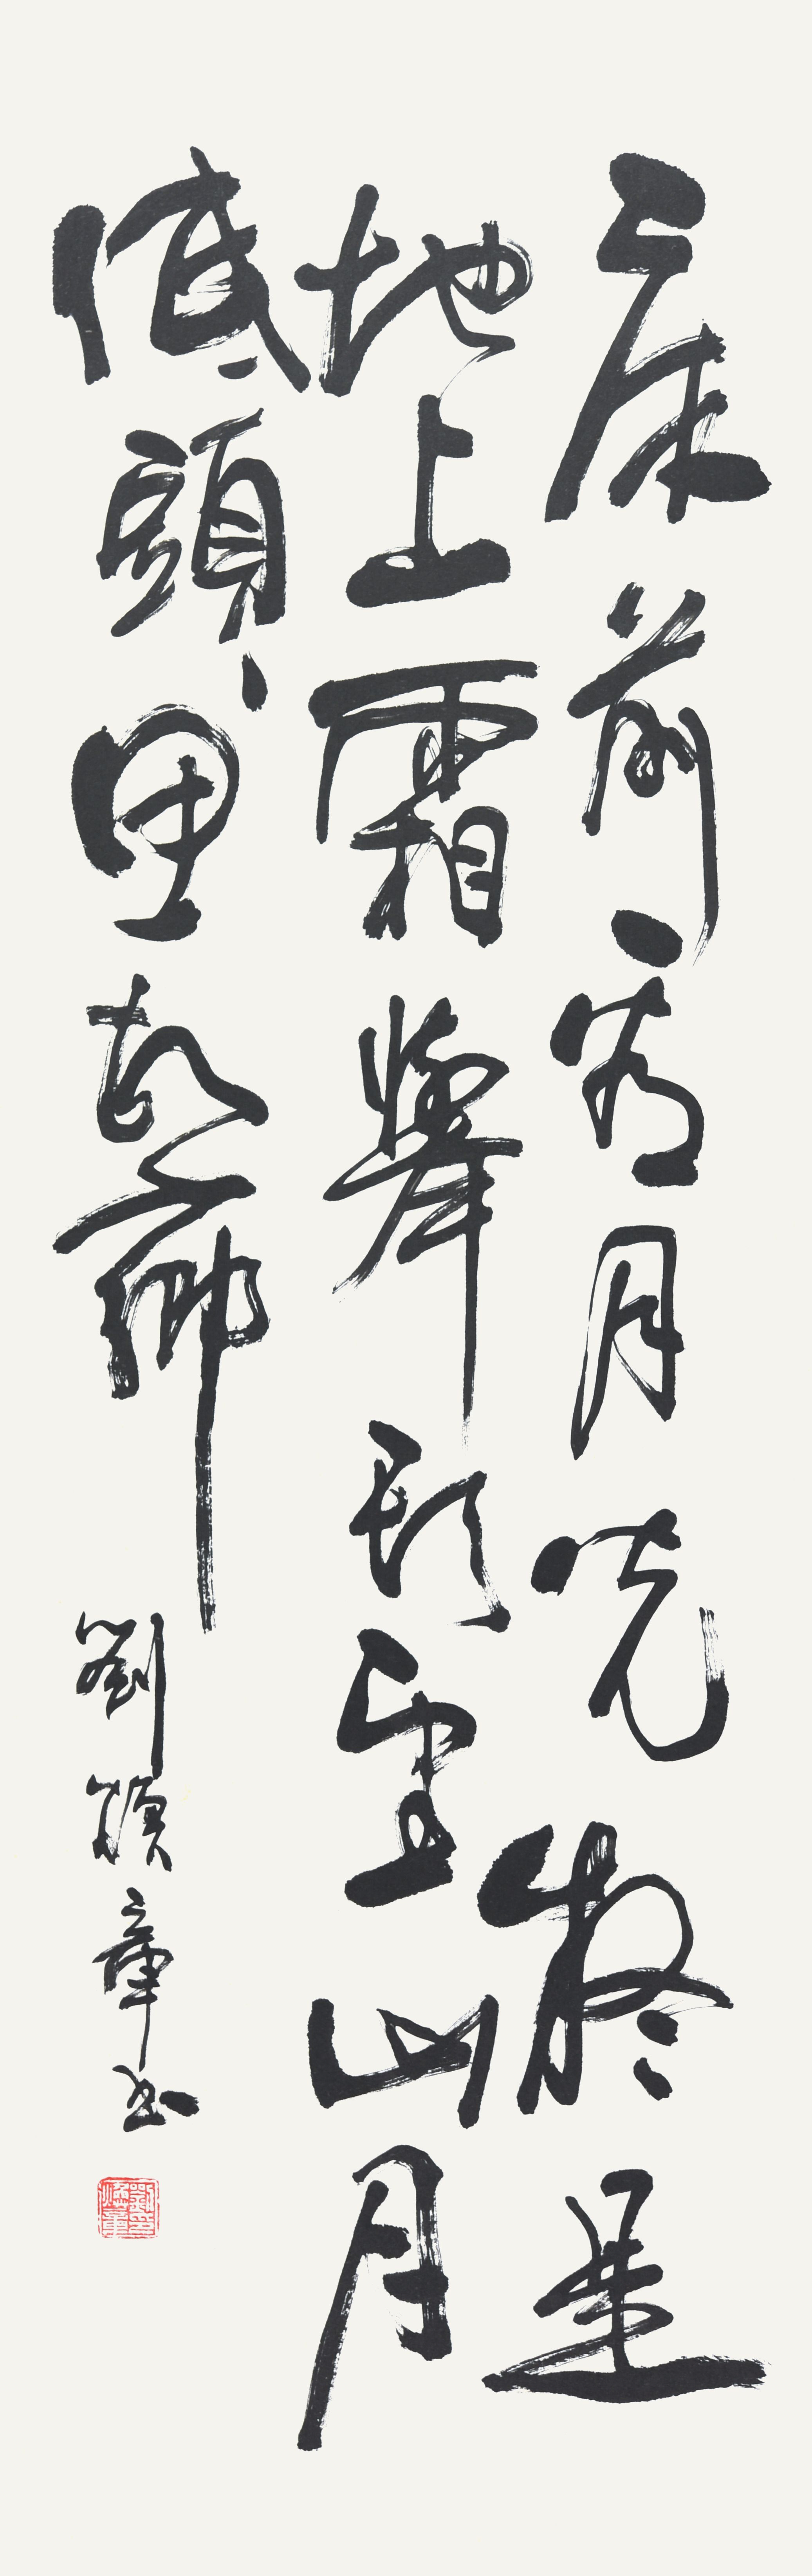 床前看月光疑是
地上霜舉頭望山月
低頭思故鄉
劉 章書